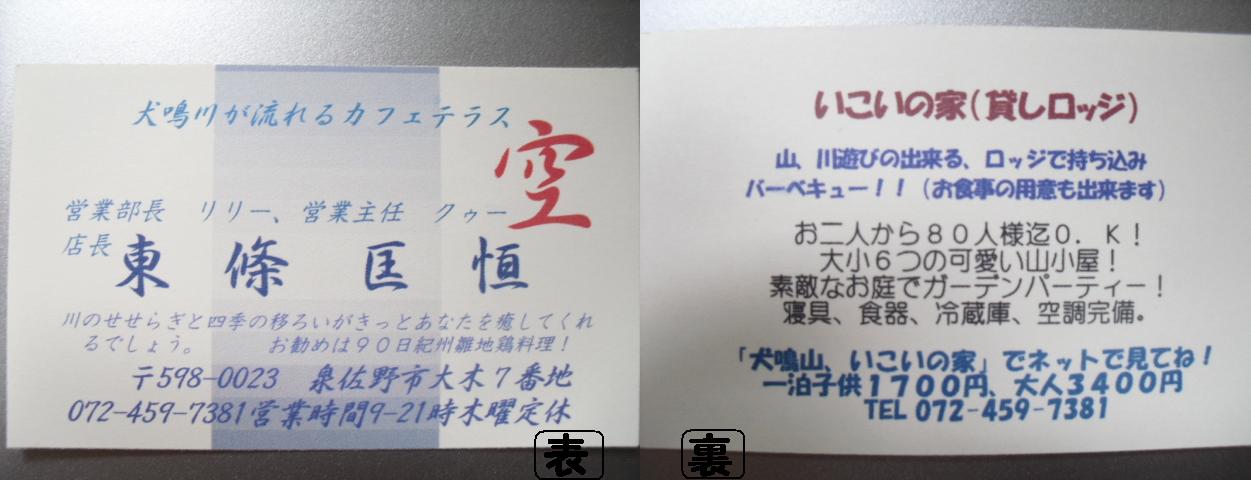 犬鳴川が流れるカフェテラス
空
営業部長　リリー、営業主任　クゥー
店長 東條匡恒
川のせせらぎと四季の移ろいがきっとあなたを癒してくれ
るでしょう。　お勧めは９０日紀州雛地鶏料理！
〒598-0023　泉佐野市大木７番地
072-459-7381営業時間9-21時木曜定休
表
いこいの家(貸しロッジ)
山、川遊びの出来る、ロッジで持ち込み
バーベキュー！！（お食事の用意も出来ます）
お二人から８０人様迄Ｏ．Ｋ！
大小６つの可愛い山小屋！
素敵なお庭でガーデンパーティー！
寝具、食器、冷蔵庫、空調完備。
「犬鳴山、いこいの家」でネットで見てね！
一泊子供１７００円、大人３４００円
TEL 072-459-7381
裏